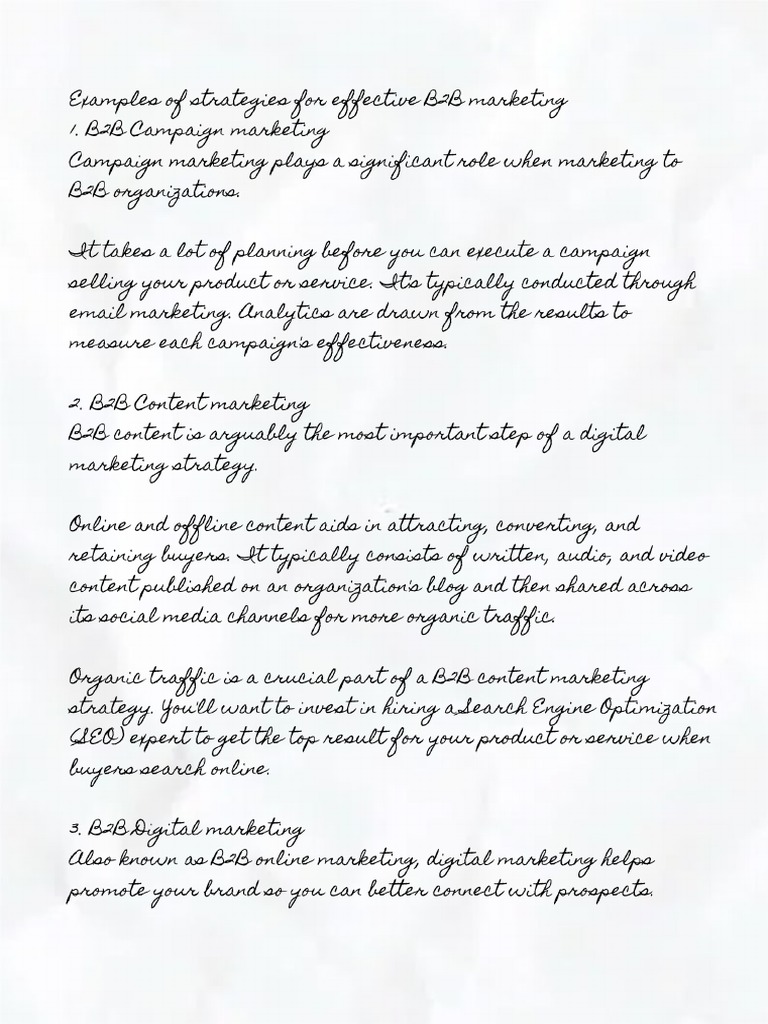 Examples of strategies for effective B2B marketing
1. B2B Campaign marketing
Campaign marketing plays a significant role when marketing to
B2B organizations.
It takes a lot of planning before you can execute a campaign
selling your product or service. It's typically conducted through
email marketing. Analytics are drawn from the results to
measure each campaign's effectiveness.
2. B2B Content marketing
B2B content is arguably the most important step of a digital
marketing strategy.
Online and offline content aids in attracting, converting, and
retaining buyers. It typically consists of written, audio, and video
content published on an organization's blog and then shared across
its social media channels for more organic traffic.
Organic traffic is a crucial part of a B2B content marketing
strategy. You'll want to invest in hiring a Search Engine Optimization
(SEO) expert to get the top result for your product or service when
buyers search online.
3. B2B Digital marketing
Also known as B2B online marketing, digital marketing helps
promote your brand so you can better connect with prospects.